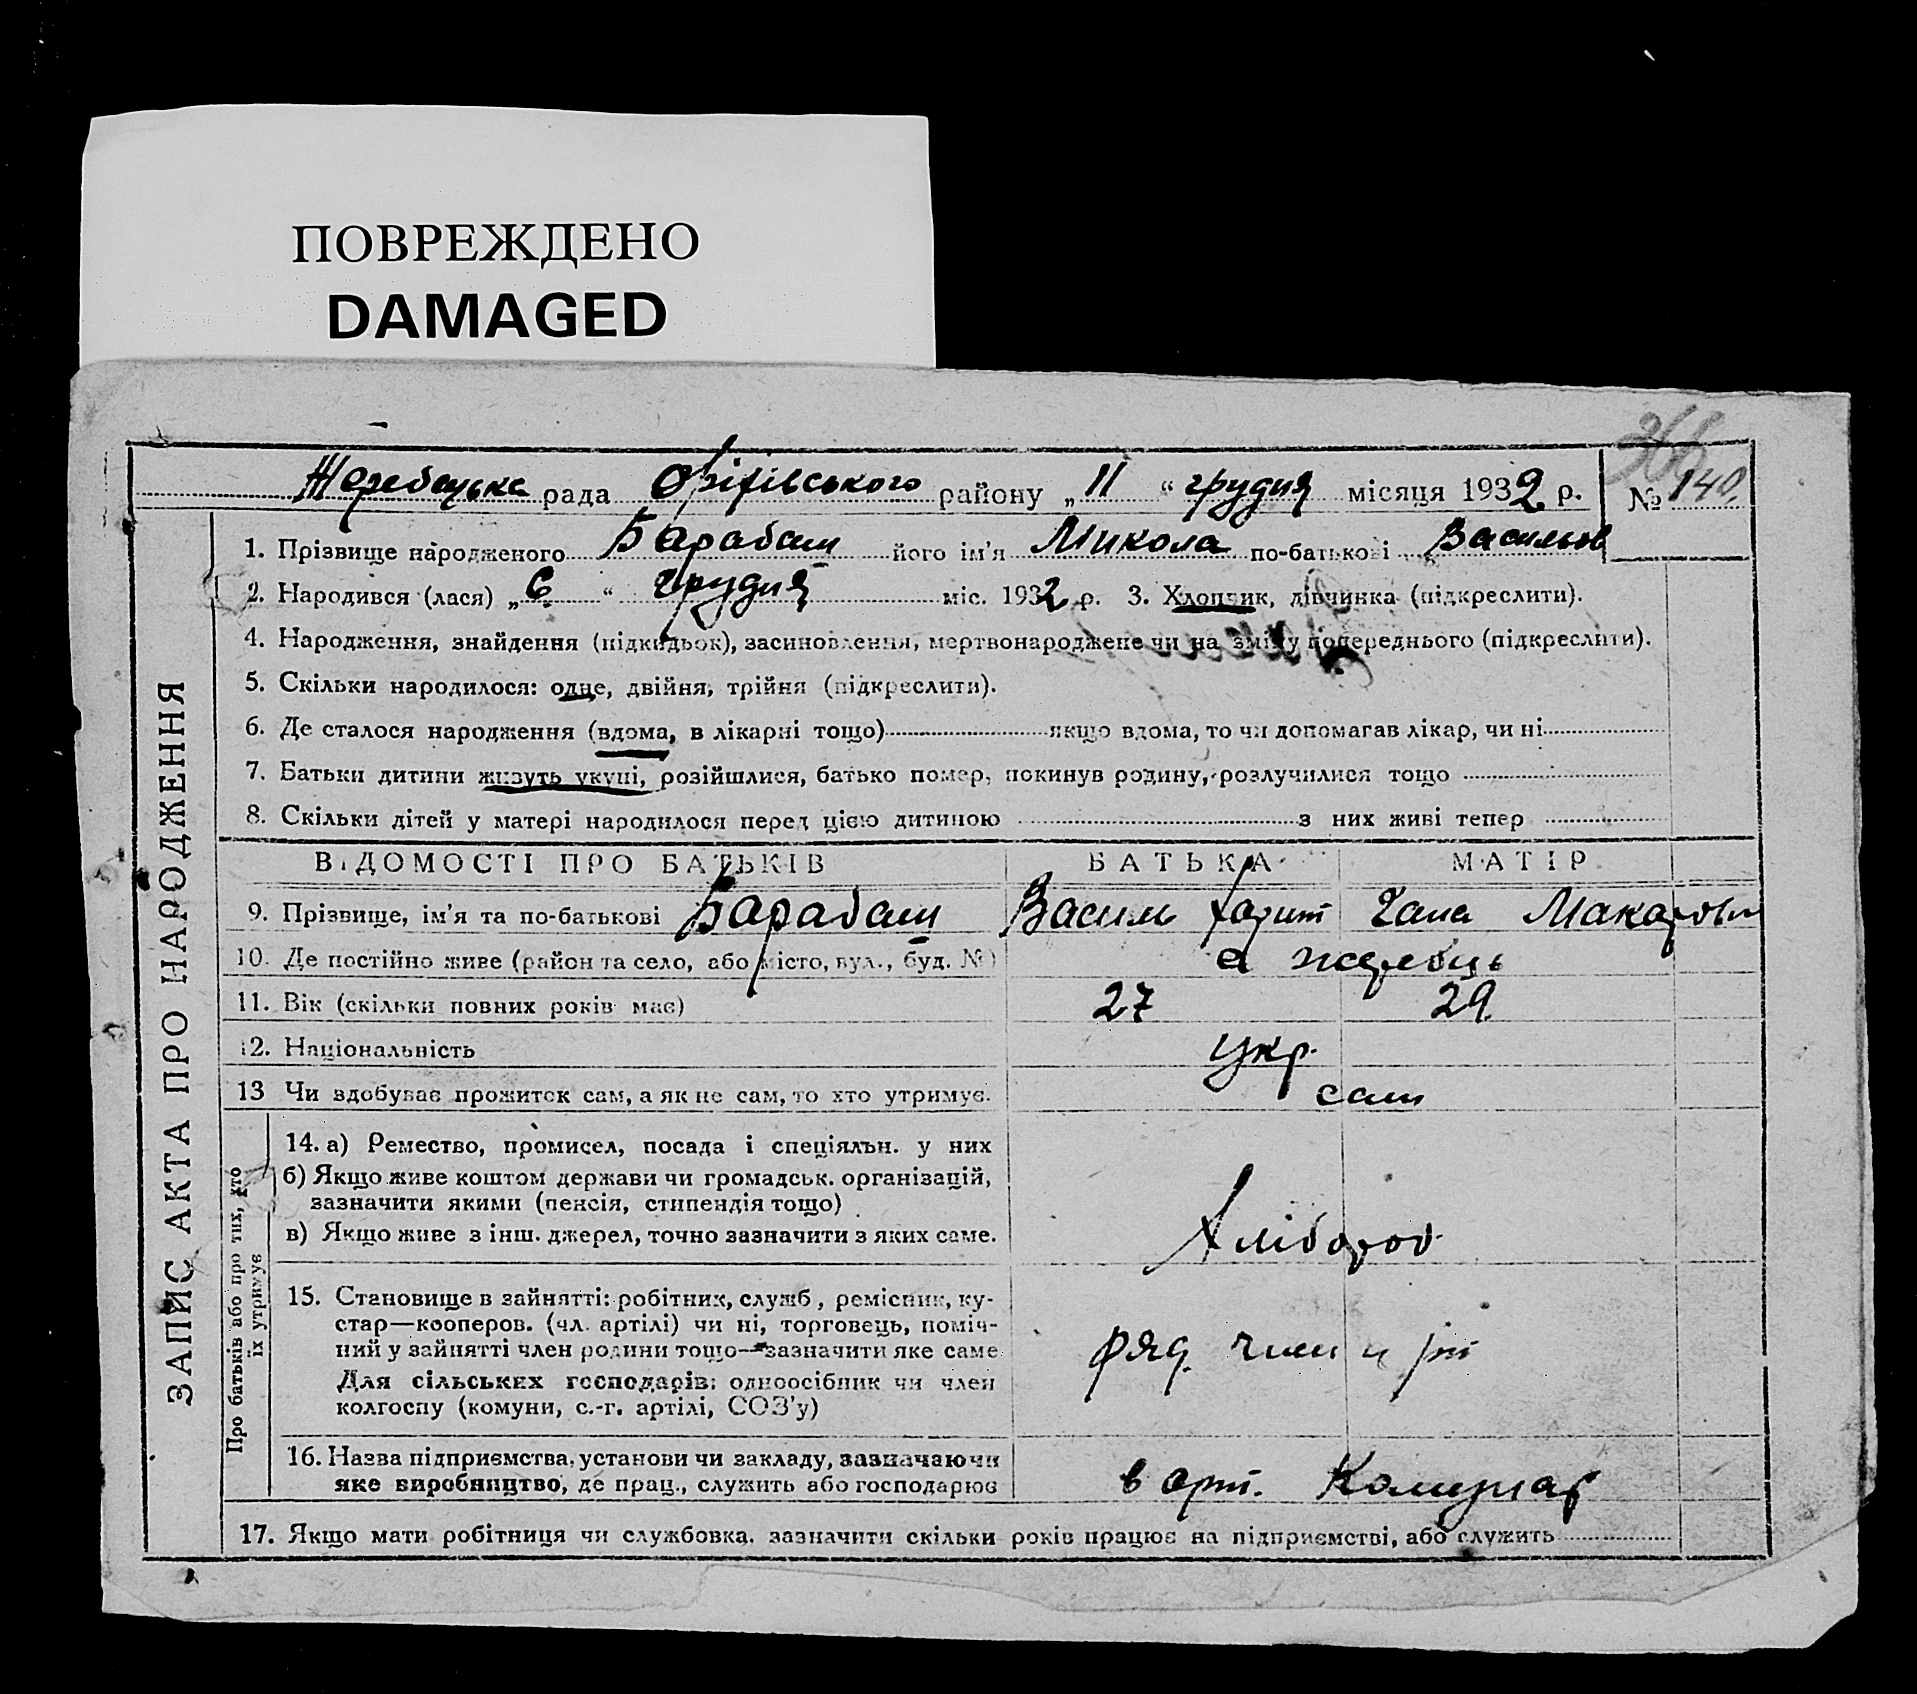 ПОВРЕЖДЕНО
DAMAGED
366
Жеребецька рада Оріхівського району „ 11 “ грудня місяця 1932 р. № 140.
ЗАПИС АКТА ПРО НАРОДЖЕННЯ
1. Прізвище народженого Барабаш його ім'я Микола по-батькові Васильов
2. Народився (лася) „ 6 “ грудня міс. 1932 р. 3. Хлопчик, дівчинка (підкреслити).
4. Народження, знайдення (підкидьок), засиновлення, мертвонароджене чи на зміну попереднього (підкреслити).
5. Скільки народилося: одне, двійня, трійня (підкреслити).
6. Де сталося народження (вдома, в лікарні тощо) якщо вдома, то чи допомагав лікар, чи ні
7. Батьки дитини живуть укупі, розійшлися, батько помер, покинув родину, розлучилися тощо
8. Скільки дітей у матері народилося перед цією дитиною з них живі тепер
ВІДОМОСТІ ПРО БАТЬКІВ БАТЬКА МАТІР
9. Прізвище, ім'я та по-батькові Барабаш Василь Харит Гапа Макаровн
10. Де постійно живе (район та село, або місто, вул., буд. №) с Жеребець
11. Вік (скільки повних років має) 27 29
12. Національність укр.
13 Чи здобуває прожиток сам, а як не сам, то хто утримує. сам
Про батьків або про тих, хто
їх утримує
14. а) Ремество, промисел, посада і спеціяльн. у них
б) Якщо живе коштом держави чи громадськ. організацій,
зазначити якими (пенсія, стипендія тощо)
в) Якщо живе з інш. джерел, точно зазначити з яких саме. Хлібороб
15. Становище в зайнятті: робітник, служб, ремісник, ку-
стар—кооперов. (чл. артілі) чи ні, торговець, поміч-
ний у зайнятті член родини тощо—зазначити яке саме ряд. член
Для сільських господарів: одноосібник чи член
колгоспу (комуни, с.-г. артілі, СОЗ'у)
16. Назва підприємства, установи чи закладу, зазначаючи
яке виробництво, де прац., служить або господарює в арт. Комунар
17. Якщо мати робітниця чи службовка, зазначити скільки років працює на підприємстві, або служить